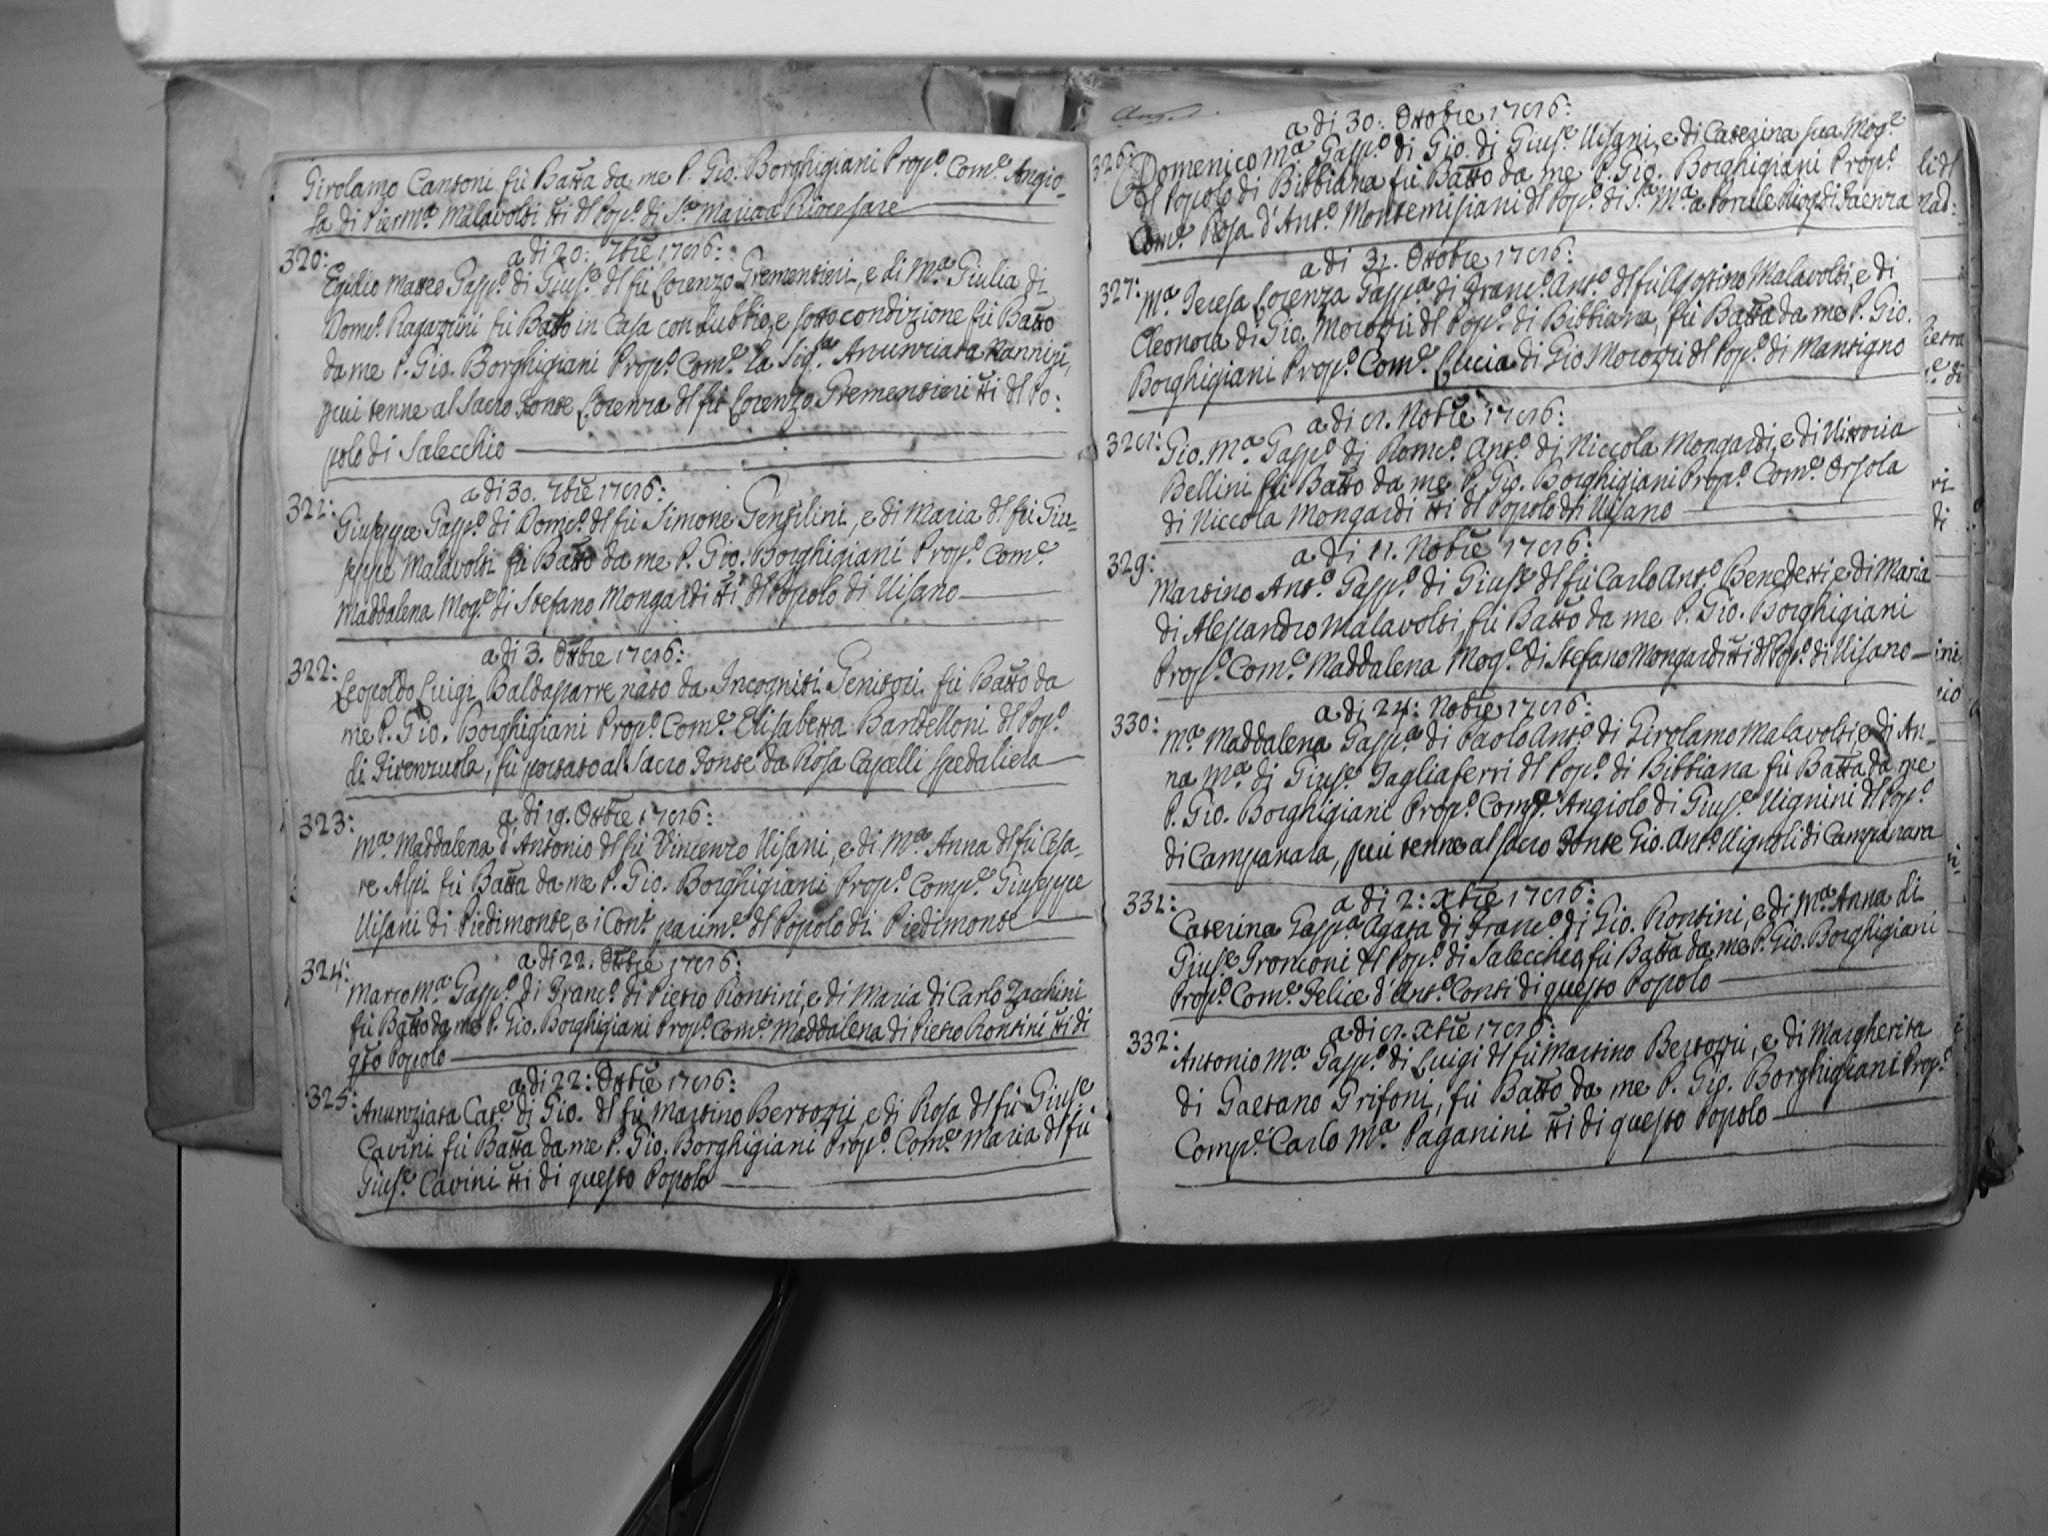 Girolamo Cantoni fù Batta da me P. Gio. Borghigiani Prop.o Com.e Angio-
la di Pier m.a Malavolti tti dl Pop.o di S.ta Maria a Riocesare
320: a di 20: 7bre 1786:
Egidio Matteo Gasp.o di Gius.e dl fù Lorenzo Trementieri, e di M.a Giulia di
Dom.co Ragazzini fù Batto in Casa con dubbio, e sotto condizione fù Batto
da me P. Gio. Borghigiani Prop.o Com.e La Sig.ra Anunziata Nannini,
p cui tenne al Sacro Fonte Lorenza dl fù Lorenzo Trementieri tti dl Po:
polo di Salecchio
321: a di 30. 7bre 1786:
Giuseppe Gasp.o di Dom.co dl fù Simone Gentilini, e di Maria dl fù Giu-
seppe Malavolti fù Batto da me P. Gio. Borghigiani Prop.o Com.e
Maddalena Mog.e di Stefano Mongardi tti dl Popolo di Visano
322: a di 3. Ottbre 1786:
Leopoldo Luigi Baldasarre nato da Incogniti Genitori fù Batto da
me P. Gio. Borghigiani Prop.o Com.e Elisabetta Bardelloni dl Pop.o
di Firenzuola, fù portato al Sacro Fonte da Rosa Capelli spedaliera
323: a di 19. Ottbre 1786:
M.a Maddalena d'Antonio dl fù Vincenzo Visani, e di M.a Anna dl fù Cesa-
re Alpi fù Batta da me P. Gio. Borghigiani Prop.o Comp.e Giuseppe
Visani di Piedimonte, e i Con.i parim.e dl Popolo di Piedimonte
324: a di 22. Ottbre 1786:
Marco M.a Gasp.o di Franc.o di Pietro Rontini, e di Maria di Carlo Zacchini
fù Batto da me P. Gio. Borghigiani Prop.o Com.e Maddalena di Pietro Rontini tti di
qto Popolo
325: a di 22: Ottbre 1786:
Anunziata Cat.a di Gio. dl fù Martino Bertozzi, e di Rosa dl fù Gius.e
Cavini fù Batta da me P. Gio. Borghigiani Prop.o Com.e Maria dl fù
Gius.e Cavini tti di questo Popolo
a di 30: Ottobre 1786:
326: Domenico M.a Gasp.o di Gio. di Gius.e Visani, e di Caterina sua Mog.e
dl Popolo di Bibbiana fù Batto da me P. Gio. Borghigiani Prop.o
Com.e Rosa d'Ant.o Montemisiani dl Pop.o di S.ta M.a a Faenza
a di 31. Ottobre 1786:
327: M.a Teresa Lorenza Gasp.a di Franc.o Ant.o dl fù Agostino Malavolti, e di
Eleonora di Gio. Morozzi dl Pop.o di Bibbiana, fù Batta da me P. Gio.
Borghigiani Prop.o Com.e Lucia di Gio. Morozzi dl Pop.o di Mantigno
a di 8. Nobre 1786:
328: Gio. M.a Gasp.o di Rom.o Ant.o di Niccola Mongardi, e di Vittoria
Bellini fù Batto da me P. Gio. Borghigiani Prop.o Com.e Orsola
di Niccola Mongardi tti dl Popolo di Visano
a di 11. Nobre 1786:
329: Martino Ant.o Gasp.o di Gius.e dl fù Carlo Ant.o Benedetti, e di Maria
di Alessandro Malavolti fù Batto da me P. Gio. Borghigiani
Prop.o Com.e Maddalena Mog.e di Stefano Mongardi tti dl Pop.o di Visano
a di 24: Nobre 1786:
330: M.a Maddalena Gasp.a di Paolo Ant.o di Girolamo Malavolti e di An-
na M.a di Gius.e Tagliaferri dl Pop.o di Bibbiana fù Batta da me
P. Gio. Borghigiani Prop.o Comp.e Angiolo di Gius.e Vignini dl Pop.o
di Campanara, p cui tenne al sacro Fonte Gio. Ant.o Vignoli di Campanara
a di 2: Xbre 1786:
331: Caterina Gasp.a Agata di Franc.o di Gio. Rontini, e di M.a Anna di
Gius.e Tronconi dl Pop.o di Salecchio, fù Batta da me P. Gio. Borghigiani
Prop.o Com.e Felice d'Ant.o Conti di questo Popolo
a di 8. Xbre 1786:
332: Antonio M.a Gasp.o di Luigi dl fù Martino Bertozzi, e di Margherita
di Gaetano Grifoni, fù Batto da me P. Gio. Borghigiani Prop.o
Comp.e Carlo M.a Paganini tti di questo Popolo